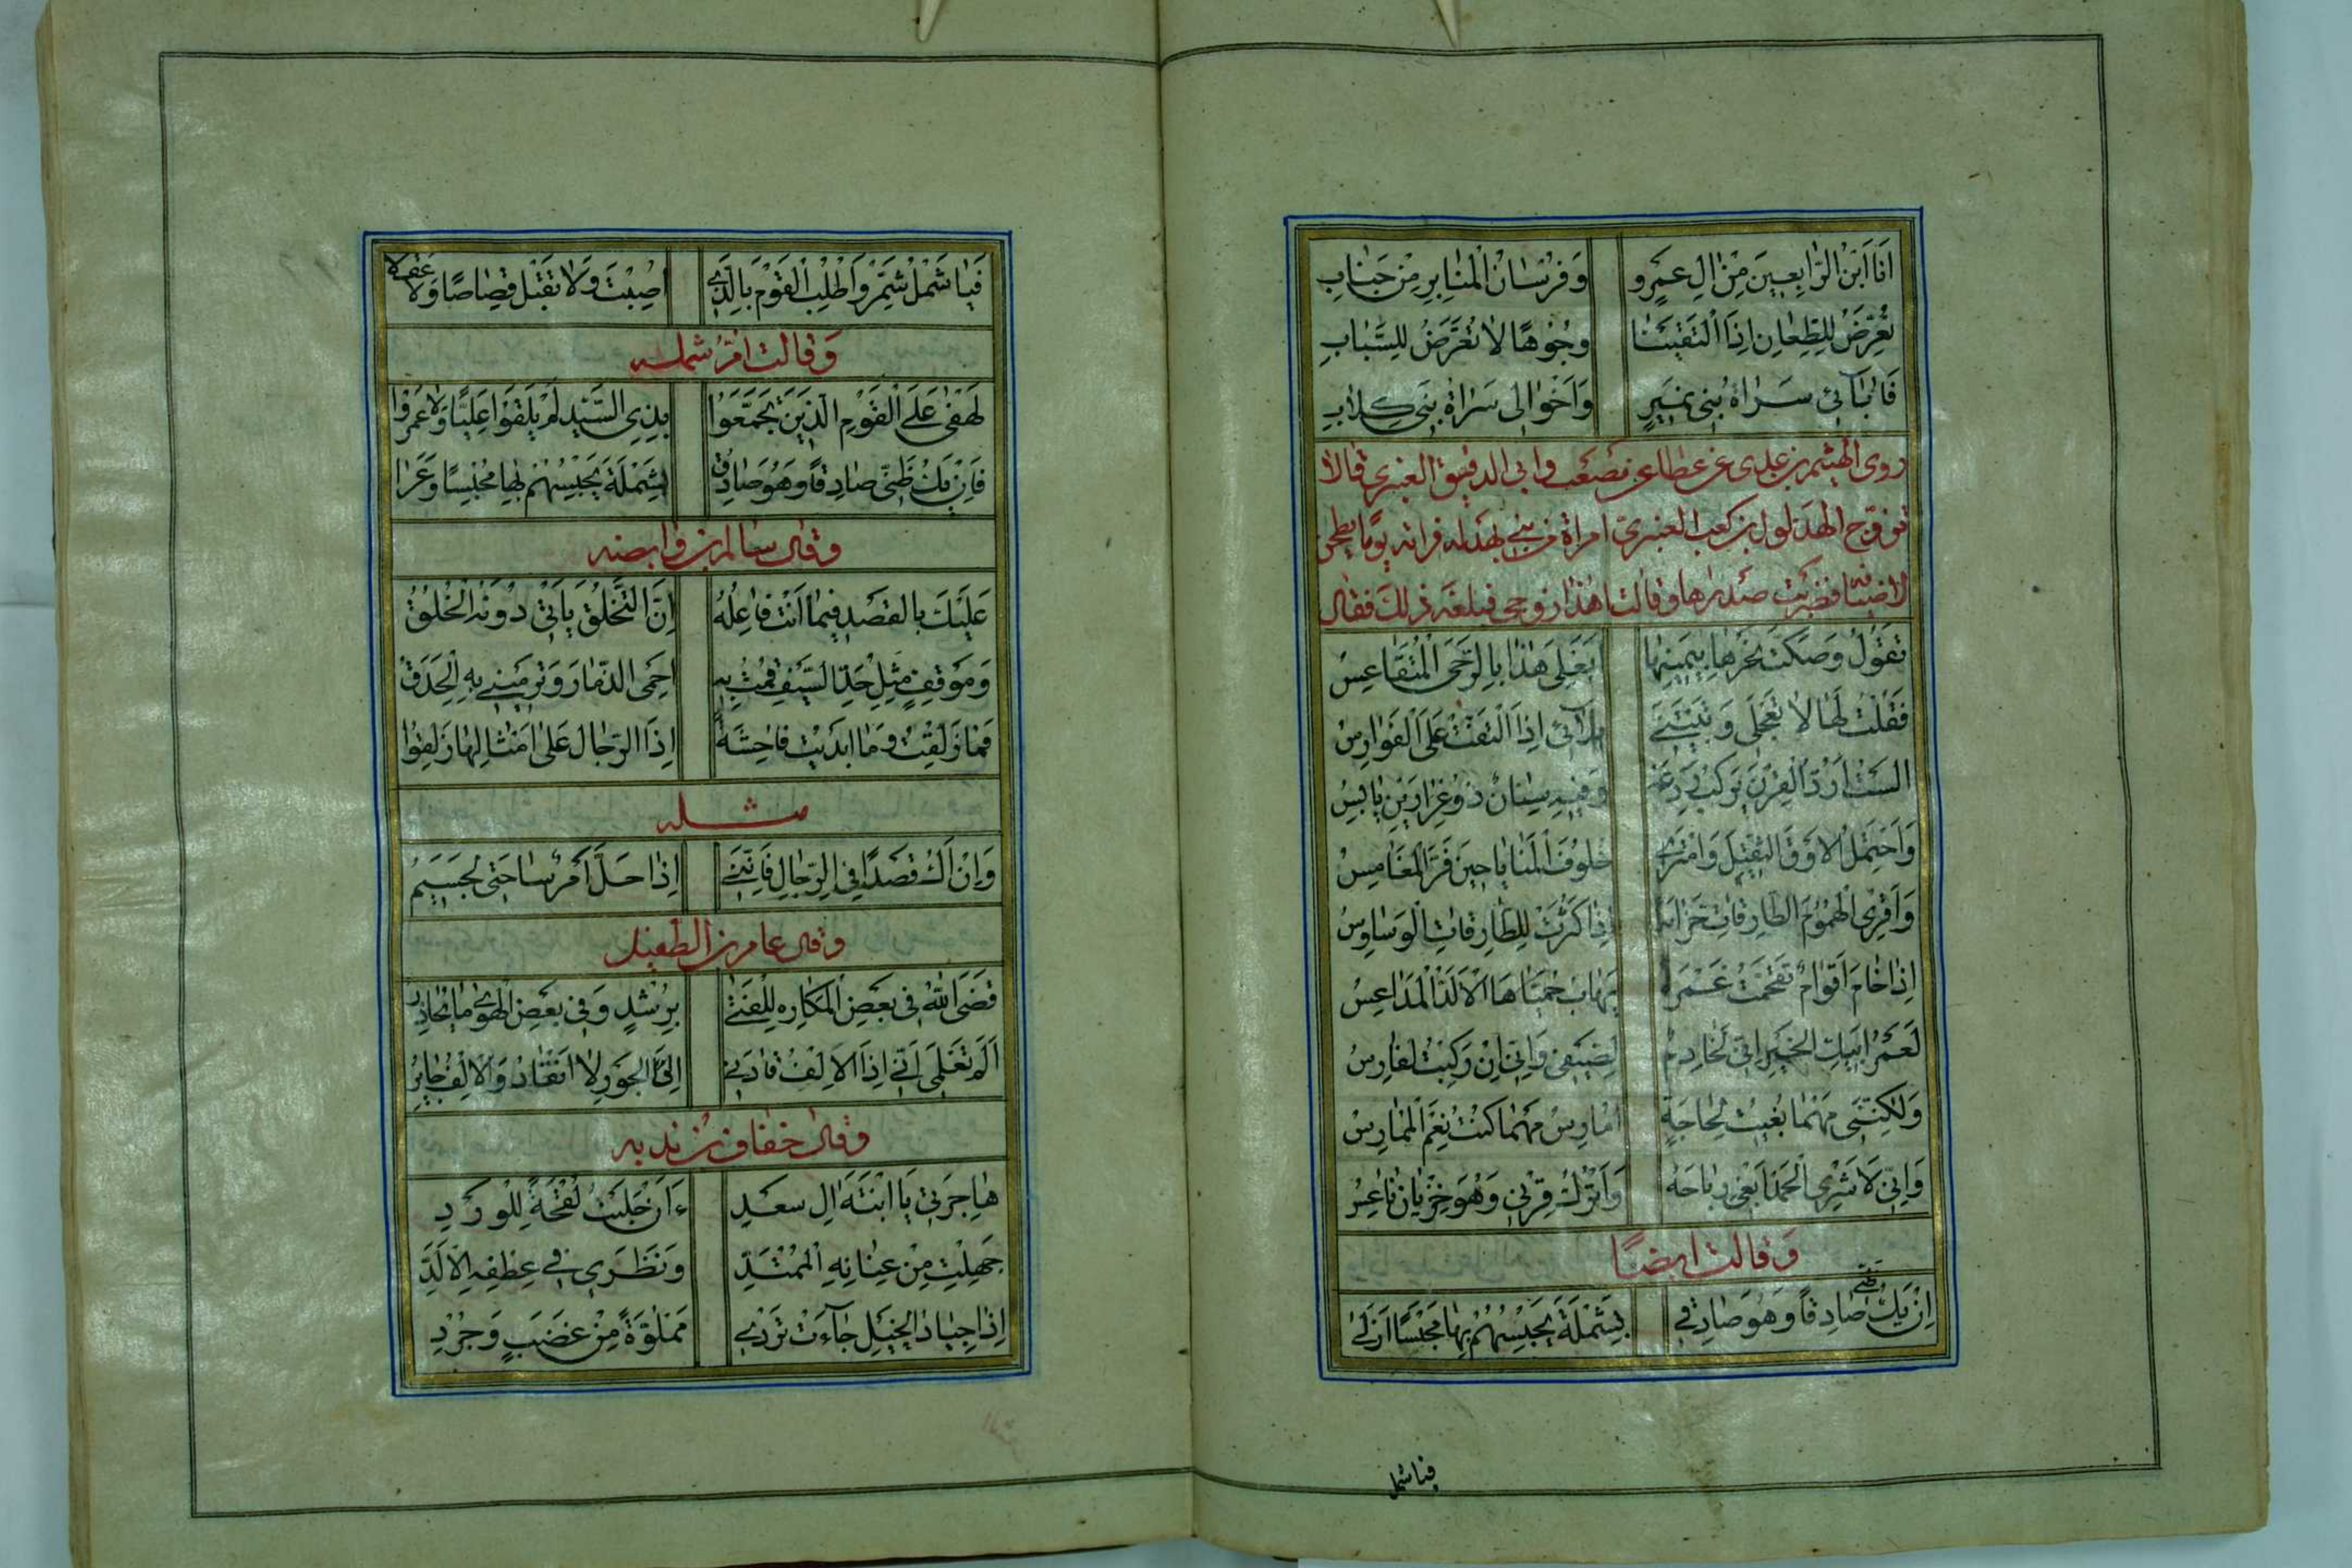 اَنَا اَبْنُ الرَّابِعِينَ مِنْ الِ عَمْرٍو وَفُرْسَانُ الْمَنَابِرِ مِنْ جَنَابِ
نُعَرِّضُ لِلطِّعَانِ اِذَا الْتَقَيْنَا وُجُوهًا لَا تُعَرَّضُ لِلسِّبَابِ
فَاٰبَآئِي سَرَاةُ بَنِي نُمَيْرٍ وَاَخْوَالِي سَرَاةُ بَنِي كِلَابِ
روى الهيثم بن عدى عن عطا بن مصعب وابى الدقيق العنبرى قالا
تزوج الهذلول بن كعب العنبرى امراة من بنى بهدله فراته يوما يطحن
لاضيافه فضربت صدرها وقالت اهذا زوجى فبلغه ذلك فقال
تَقُولُ وَصَكَّتْ نَحْرَهَا بِيَمِينِهَا اَبَعْلِيَ هٰذَا بِالرَّحَى الْمُتَقَاعِسُ
فَقُلْتُ لَهَا لَا تَعْجَلِي وَتَبَيَّنِي بَلَائِي اِذَا الْتَفَّتْ عَلَيَّ الْفَوَارِسُ
اَلَسْتُ اَرُدُّ الْقِرْنَ يَرْكَبُ رَدْعَهُ وَفِيهِ سِنَانٌ ذُو غِرَارَيْنِ يَابِسُ
وَاَحْتَمِلُ الْاَوْقَ الثَّقِيلَ وَاَمْتَرِي خُلُوفَ الْمَنَايَا حِينَ فَرَّ الْمُغَامِسُ
وَاَقْرِي الْهُمُومَ الطَّارِقَاتِ حَزَامَةً اِذَا كَثُرَتْ لِلطَّارِقَاتِ الْوَسَاوِسُ
اِذَا خَامَ اَقْوَامٌ تَقَحَّمْتُ غَمْرَةً يَهَابُ حُمَيَّاهَا الْاَلَدُّ الْمُدَاعِسُ
لَعَمْرُ اَبِيكِ الْخَيْرِ اِنِّي لَخَادِمٌ لِضَيْفِي وَاِنِّي اِنْ رَكِبْتُ لَفَارِسُ
وَلٰكِنَّنِي مَهْمَا بُغِيتُ لِحَاجَةٍ اُمَارِسُ مَهْمَا كُنْتُ نِعْمَ الْمُمَارِسُ
وَاِنِّي لَاَشْرِي الْحَمْدَ اَبْغِي رَبَاحَهُ وَاَتْرُكُ قِرْنِي وَهُوَ خَزْيَانُ نَاعِسُ
وَقالت ايضًا
اِنْ يَكُ ظَنِّي صَادِقًا وَهُوَ صَادِقِي بِشَمْلَةَ يَحْبِسْهُمْ بِهَا مَحْبِسًا اَزْلَا
فياشمل
فَيَا شَمْلُ شَمِّرْ وَاطْلُبِ الْقَوْمَ بِالَّذِي اُصِبْتَ وَلَا تَقْبَلْ قِصَاصًا وَلَا عَقْلَا
وَقالت امّ شمله
لَهْفِي عَلَى الْقَوْمِ الَّذِينَ تَجَمَّعُوا بِذِي السَّيْدِ لَمْ يَلْقَوْا عَلِيًّا وَلَا عَمْرَوا
فَاِنْ يَكُ ظَنِّي صَادِقًا وَهُوَ صَادِقِي بِشَمْلَةَ يَحْبِسْهُمْ بِهَا مَحْبِسًا وَعْرَا
وقال سالم بن وابصه
عَلَيْكَ بِالْقَصْدِ فِيمَا اَنْتَ فَاعِلُهُ اِنَّ التَّخَلُّقَ يَاْتِي دُونَهُ الْخُلُقُ
وَمَوْقِفٍ مِثْلِ حَدِّ السَّيْفِ قُمْتُ بِهِ اَحْمِي الذِّمَارَ وَتَرْمِينِي بِهِ الْحَدَقُ
فَمَا زَلِقْتُ وَمَا اَبْدَيْتُ فَاحِشَةً اِذَا الرِّجَالُ عَلَى اَمْثَالِهَا زَلِقُوا
مثله
وَاِنْ اَكُ قَصْدًا فِي الرِّجَالِ فَاِنَّنِي اِذَا حَلَّ اَمْرٌ سَاحَتِي لَجَسِيمُ
وقال عامر بن الطفيل
قَضَى اللهُ فِي بَعْضِ الْمَكَارِهِ لِلْفَتَى بِرُشْدٍ وَفِي بَعْضِ الْهَوَى مَا يُحَاذِرُ
اَلَمْ تَعْلَمِي اَنِّي اِذَا الْاِلْفُ قَادَنِي اِلَى الْجَوْرِ لَا اَنْقَادُ وَالْاِلْفُ جَايِرُ
وقال خفاف بن ندبه
هَاجِرَتِي يَا ابْنَةَ اٰلِ سَعْدِ ءَاَنْ حَلَبْتُ لَقْحَةً لِلْوَرْدِ
جَهِلْتِ مِنْ عِنَانِهِ الْمُمْتَدِّ وَنَظَرِي فِي عِطْفِهِ الْاَلَدِّ
اِذَا جِيَادُ الْخَيْلِ جَآءَتْ تَرْدِي مَمْلُوَّةً مِنْ غَضَبٍ وَحَرْدِ